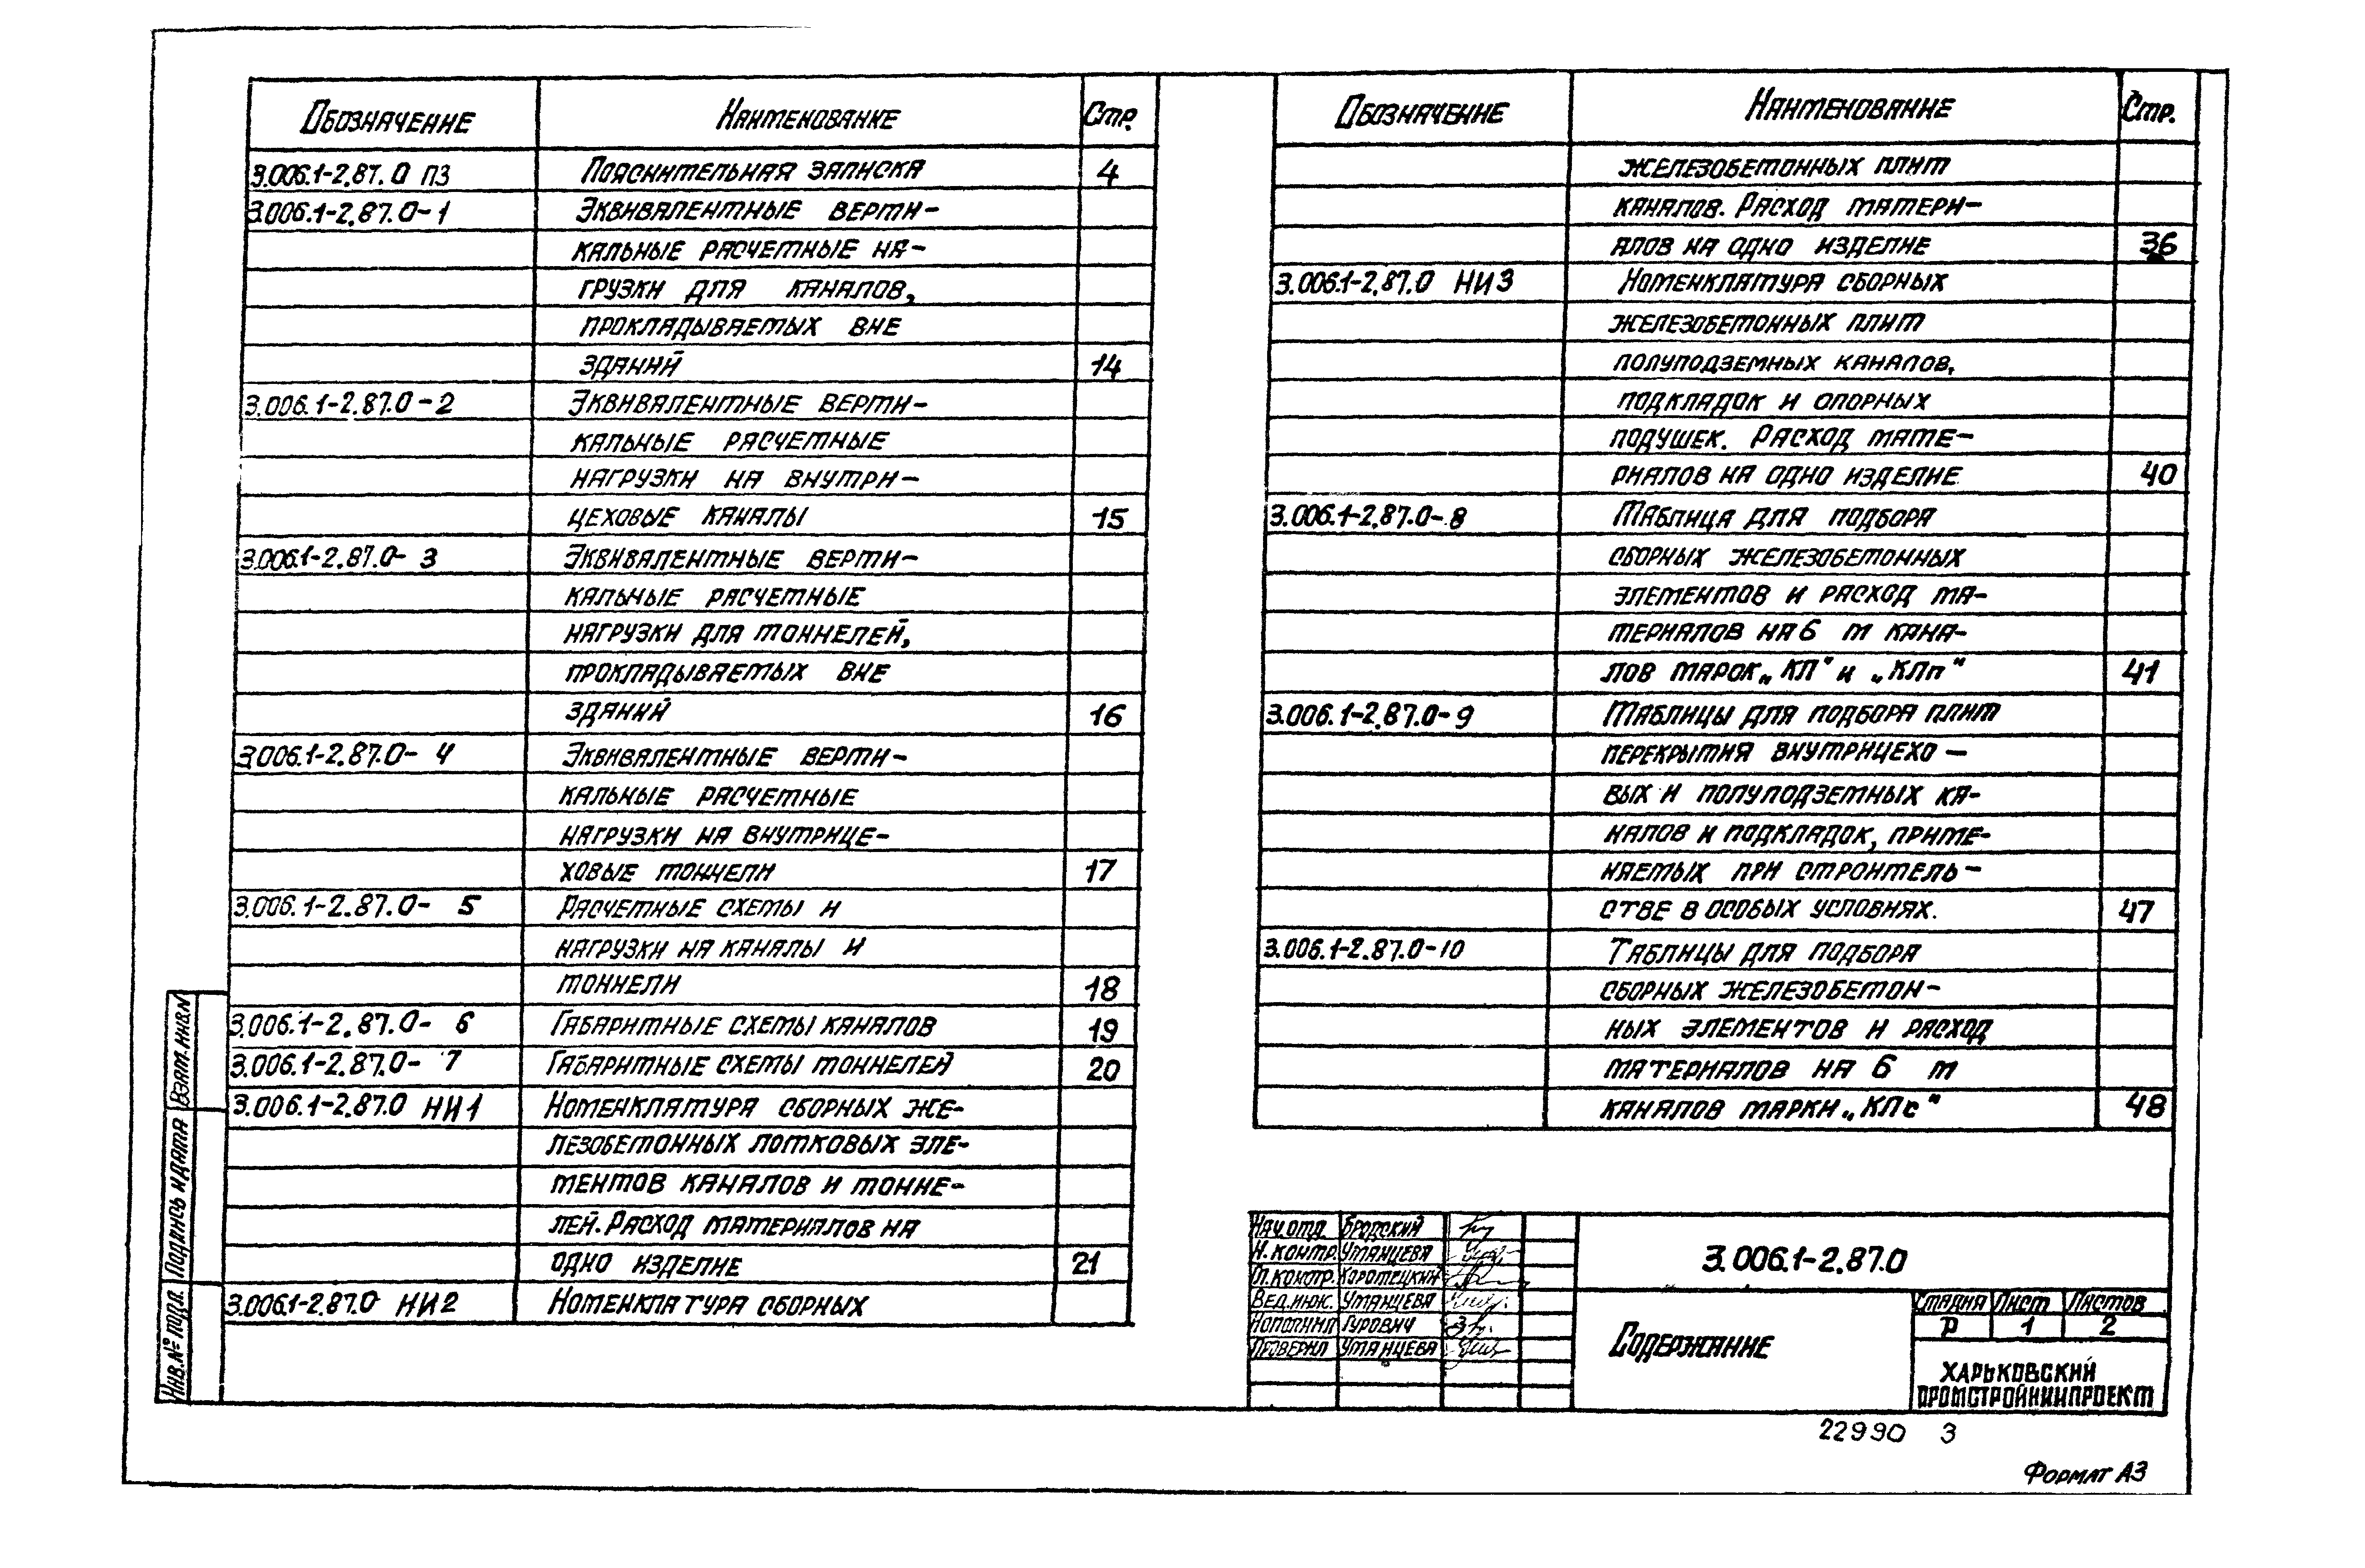 Обозначение Наименование Стр.
3.006.1-2.87.0 ПЗ Пояснительная записка 4
3.006.1-2.87.0-1 Эквивалентные верти-
кальные расчетные на-
грузки для каналов,
прокладываемых вне
зданий 14
3.006.1-2.87.0-2 Эквивалентные верти-
кальные расчетные
нагрузки на внутри-
цеховые каналы 15
3.006.1-2.87.0-3 Эквивалентные верти-
кальные расчетные
нагрузки для тоннелей,
прокладываемых вне
зданий 16
3.006.1-2.87.0-4 Эквивалентные верти-
кальные расчетные
нагрузки на внутрице-
ховые тоннели 17
3.006.1-2.87.0-5 Расчетные схемы и
нагрузки на каналы и
тоннели 18
3.006.1-2.87.0-6 Габаритные схемы каналов 19
3.006.1-2.87.0-7 Габаритные схемы тоннелей 20
3.006.1-2.87.0 НИ1 Номенклатура сборных же-
лезобетонных лотковых эле-
ментов каналов и тонне-
лей. Расход материалов на
одно изделие 21
3.006.1-2.87.0 НИ2 Номенклатура сборных
Обозначение Наименование Стр.
железобетонных плит
каналов. Расход матери-
алов на одно изделие 36
3.006.1-2.87.0 НИ3 Номенклатура сборных
железобетонных плит
полуподземных каналов,
подкладок и опорных
подушек. Расход мате-
риалов на одно изделие 40
3.006.1-2.87.0-8 Таблица для подбора
сборных железобетонных
элементов и расход ма-
териалов на 6 м кана-
лов марок „КЛ" и „КЛп" 41
3.006.1-2.87.0-9 Таблицы для подбора плит
перекрытия внутрицехо-
вых и полуподземных ка-
налов и подкладок, приме-
няемых при строитель-
стве в особых условиях. 47
3.006.1-2.87.0-10 Таблицы для подбора
сборных железобетон-
ных элементов и расход
материалов на 6 м
каналов марки „КЛс" 48
Нач.отд. Бродский
Н.контр. Уманцева
Гл.констр. Коротецкий
Вед.инж. Уманцева
Исполнил Гурович
Проверил Уманцева
3.006.1-2.87.0
Содержание
Стадия Лист Листов
Р 1 2
Харьковский
Промстройниипроект
22990 3
Формат А3
Инв.№ подл. Подпись и дата Взам.инв.№